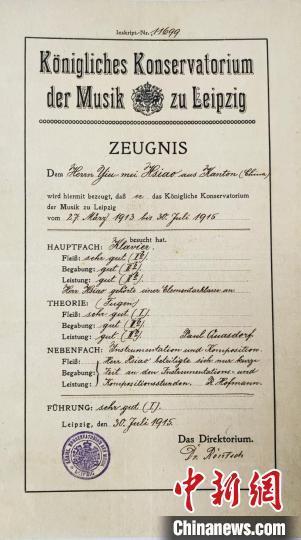 Inskript.-Nr. 11699
Königliches Konservatorium
der Musik zu Leipzig
ZEUGNIS
Dem Herrn Yiu mei Hsiao aus Kanton (China)
wird hiermit bezeugt, daß er das Königliche Konservatorium
der Musik zu Leipzig
vom 27. März 1913 bis 30. Juli 1915
besucht hat.
HAUPTFACH: Klavier.
Fleiß: sehr gut
Begabung: gut
Leistung: gut
Herr Hsiao gehörte einer Elementarklasse an
THEORIE: (Fugen)
Fleiß: sehr gut (I.)
Begabung: gut
Leistung: gut
Paul Quasdorf
NEBENFACH: Instrumentation und Komposition
Fleiß: Herr Hsiao beteiligte sich nur kurze
Begabung: Zeit an den Instrumentations- und
Leistung: Kompositionsstunden. R. Hofmann.
FÜHRUNG: sehr gut (I.)
Leipzig, den 30. Juli 1915.
Das Direktorium.
Dr. Röntsch
中新网
Chinanews.com